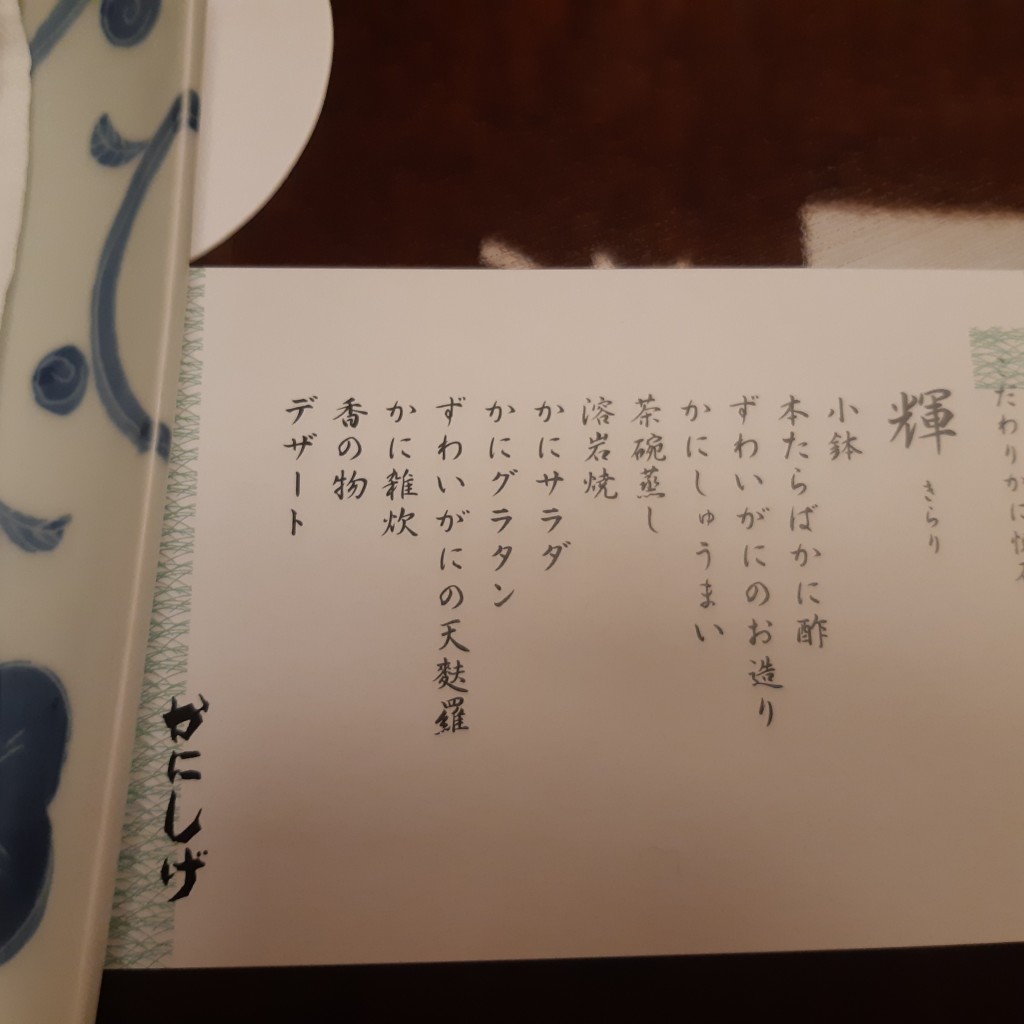 たわりかに
輝 きらり
小鉢
本たらばかに酢
ずわいがにのお造り
かにしゅうまい
茶碗蒸し
溶岩焼
かにサラダ
かにグラタン
ずわいがにの天麩羅
かに雑炊
香の物
デザート
かにしげ